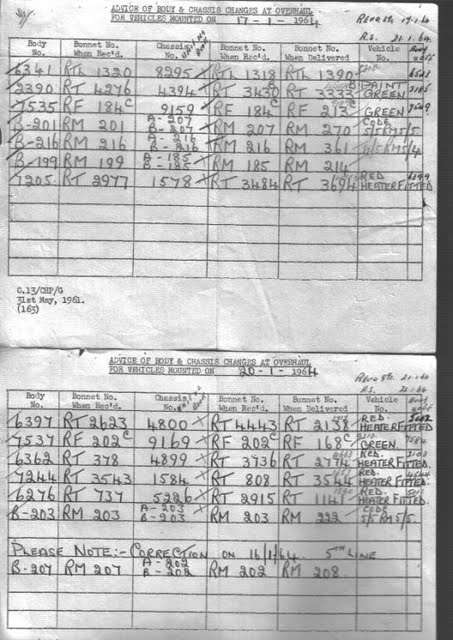 ADVICE OF BODY & CHASSIS CHANGES AT OVERHAUL
FOR VEHICLES MOUNTED ON 17-1-1964
21.1.64
Body No. Bonnet No. When Rec'd. Chassis No. Bonnet No. When Rec'd. Bonnet No. When Delivered Vehicle No. Body
6341 RTL 1320 8295 RTL 1318 RTL 1390
2290 RT 4276 4394 RT 3430 RT 3333 PAINT GREEN
7535 RF 184C 9159 RF 184C RF 213C GREEN
B-201 RM 201 A-207 B-207 RM 207 RM 270 CODE 5/5RM5/5
B-216 RM 216 A-216 B-216 RM 216 RM 361 5/5RM5/4
B-199 RM 199 A-185 B-185 RM 185 RM 214
7205 RT 2977 1578 RT 3484 RT 3694 RED HEATER FITTED
C.13/CHP/G
31st May, 1961.
(163)
ADVICE OF BODY & CHASSIS CHANGES AT OVERHAUL
FOR VEHICLES MOUNTED ON 20-1-1964
Body No. Bonnet No. When Rec'd. Chassis No. Bonnet No. When Rec'd. Bonnet No. When Delivered Vehicle No. Body
6397 RT 2623 4800 RT 4443 RT 2138 RED. HEATER FITTED.
7537 RF 202C 9169 RF 202C RF 168C GREEN
6362 RT 378 4899 RT 3736 RT 2774 HEATER FITTED.
7244 RT 3543 1584 RT 808 RT 3544 RED. HEATER FITTED.
6276 RT 737 5226 RT 2915 RT 1141 RED. HEATER FITTED.
B-203 RM 203 A-203 B-203 RM 203 RM 222 CODE 5/5 RM 5/5
PLEASE NOTE:- CORRECTION ON 16/1/64 5TH LINE
B-207 RM 207 A-202 B-202 RM 202 RM 208